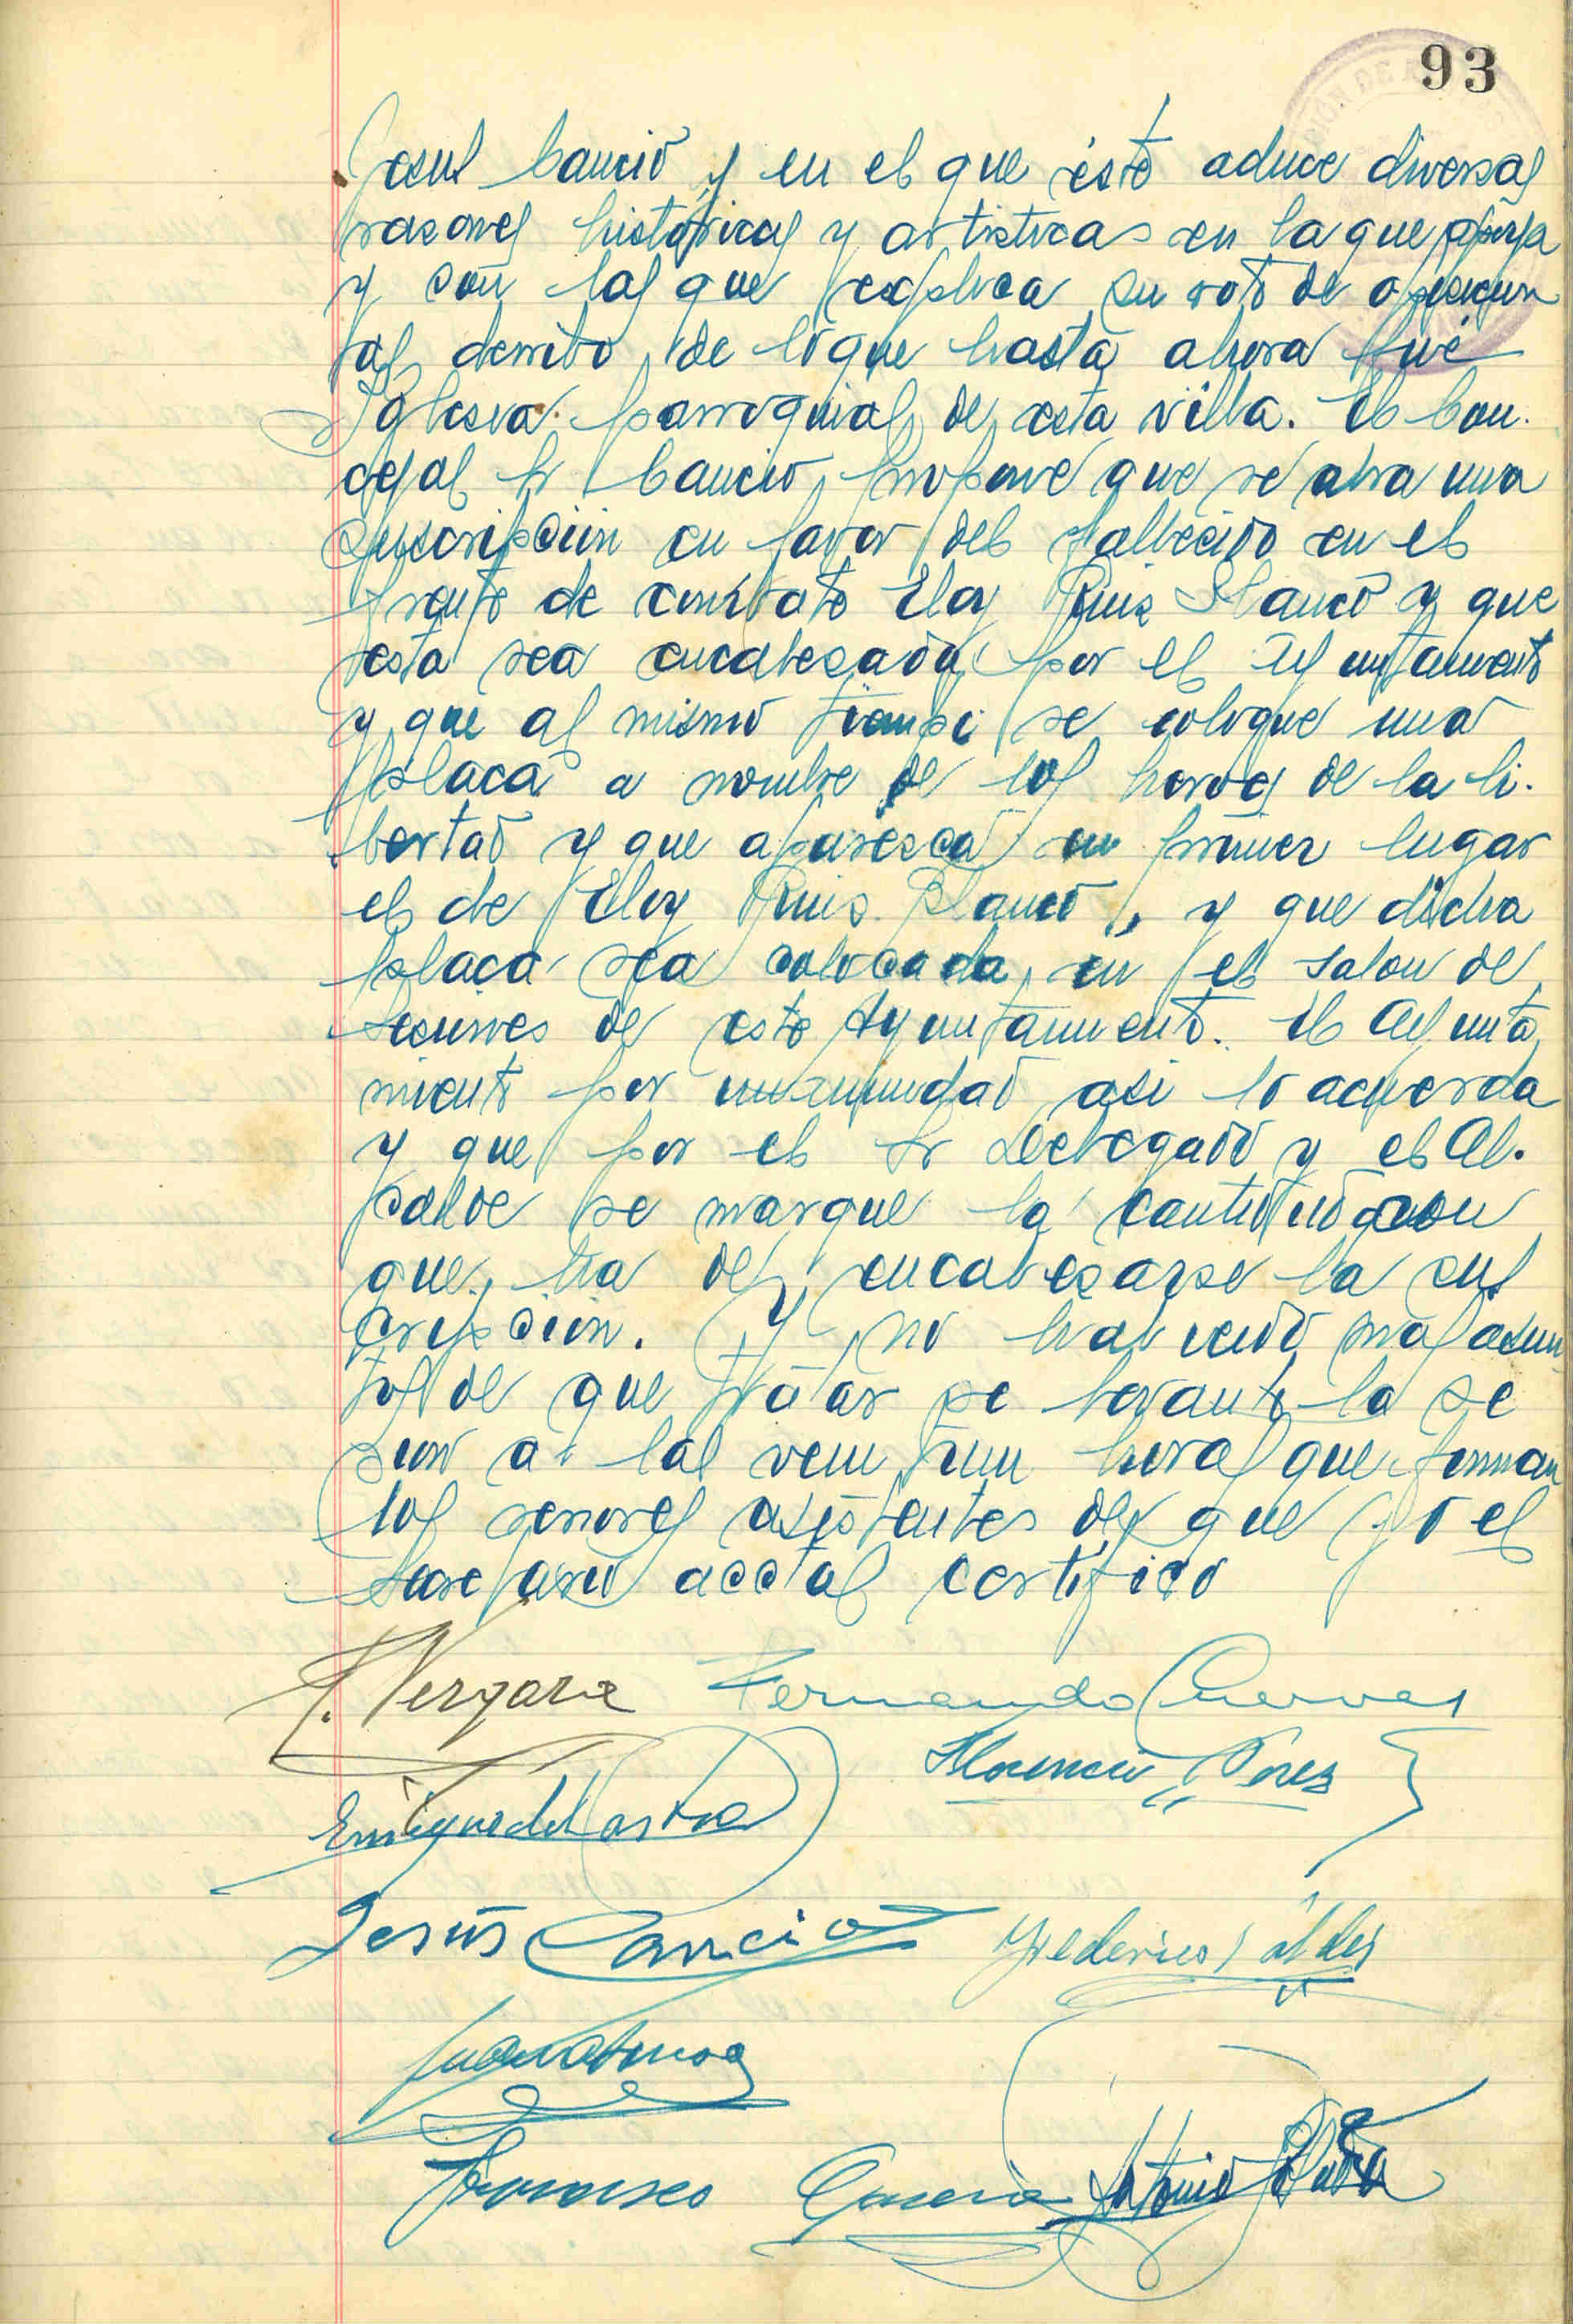 93
Jesus Cancio y en el que éste aduce diversas
razones históricas y artisticas en la que apoya
y con las que explica su voto de oposicion
al derribo de lo que hasta ahora fué
Iglesia parroquial de esta villa. El Con-
cejal Sr Cancio propone que se abra una
suscripción en favor del fallecido en el
frente de combate Eloy Ruiz Blanco y que
esta sea encabezada por el Ayuntamiento
y que al mismo tiempo se coloque una
placa a nombre de los heroes de la li-
bertad y que aparezca en primer lugar
el de Eloy Ruiz Blanco, y que dicha
placa sea colocada en el salon de
Sesiones de este Ayuntamiento. El Ayunta
miento por unanimidad asi lo acuerda
y que por el Sr Delegado y el Al-
calde se marque la cantidad con
que ha de encabezarse la sus
cripcion. Y no habiendo mas asun
tos de que tratar se levanto la se
sion a las veintiun horas que firman
los señores asistentes de que yo el
Secretario acctal certifico
Vergara Fernando Cuevas
Florencio Perez
Enrique del Castro
Jesús Cancio Federico
Francisco Antonio